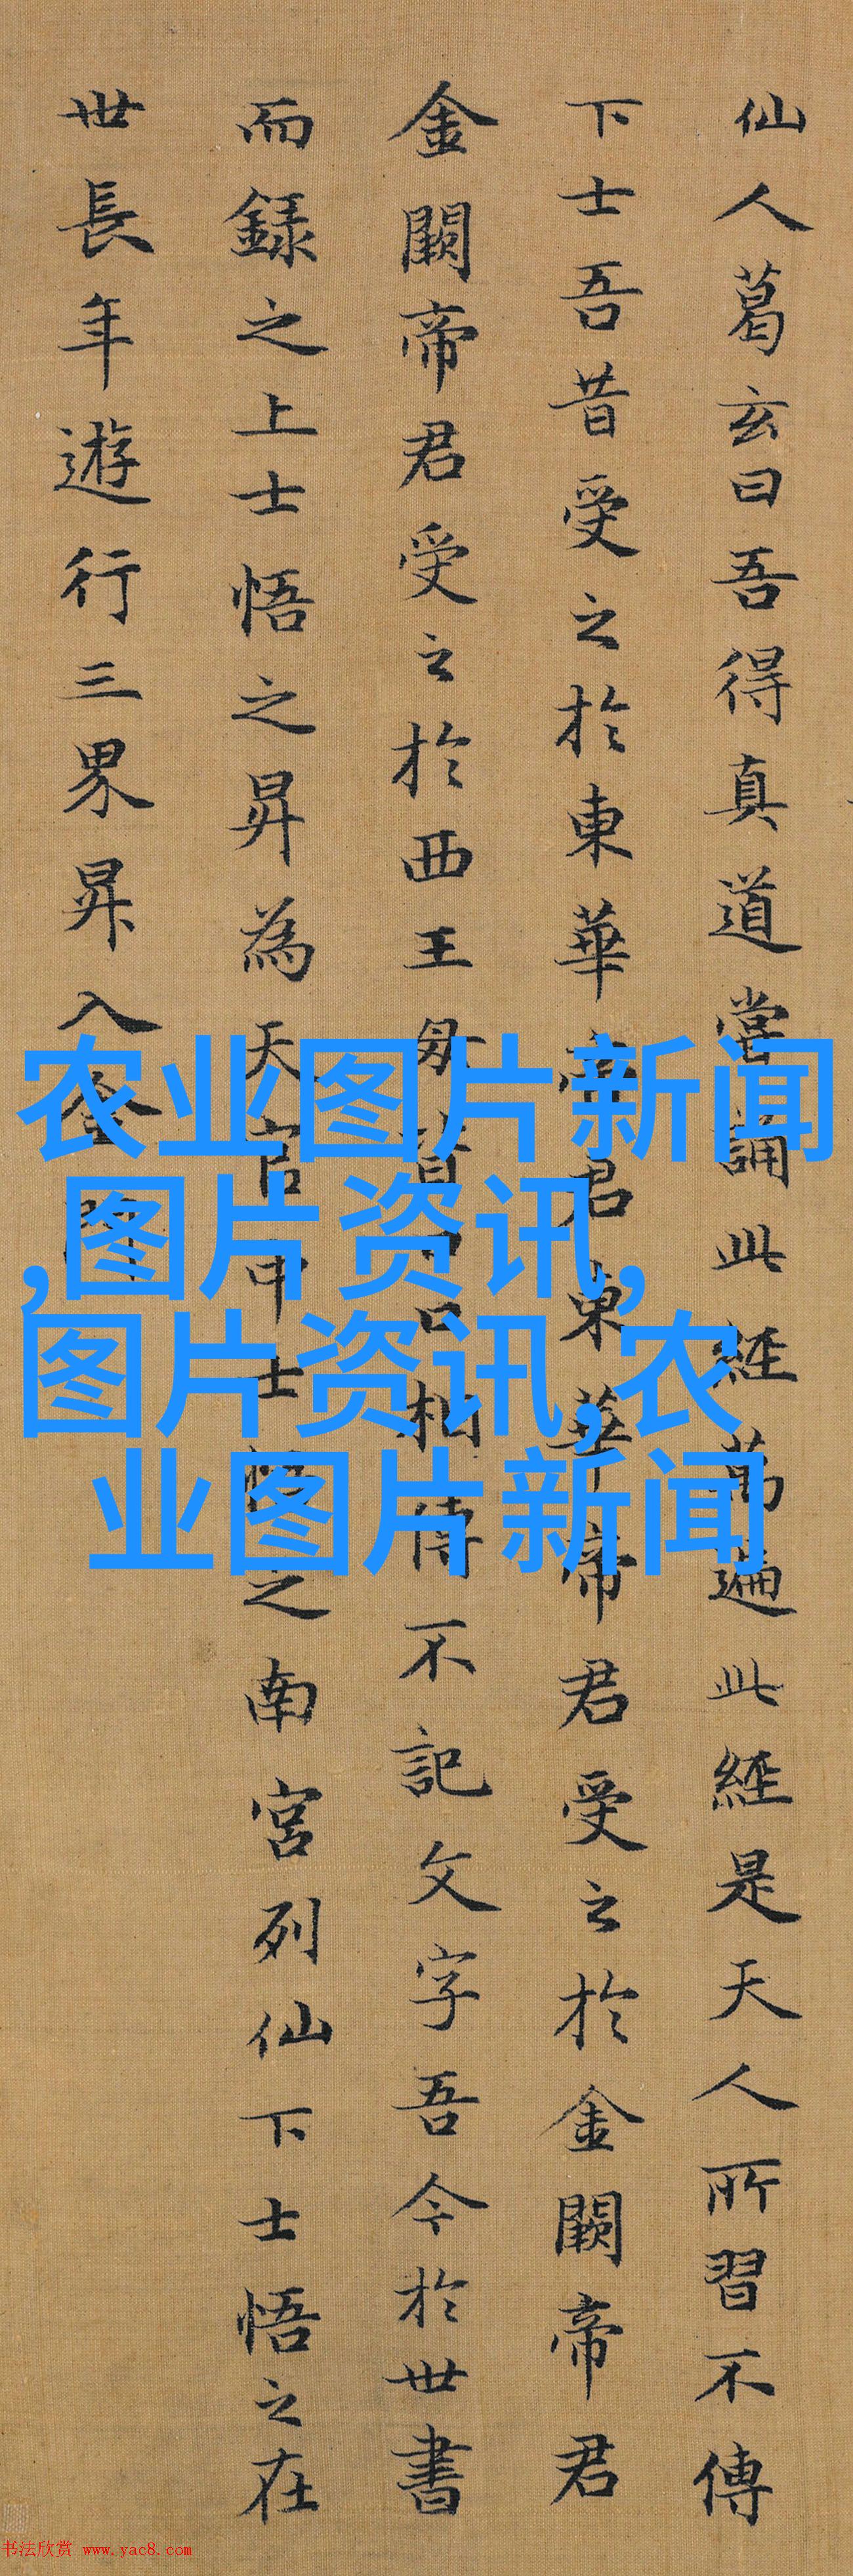 仙人葛玄曰吾得真道當誦此經萬遍此經是天人所習不傳
下士吾昔受之於東華帝君東華帝君受之於金闕帝君
金闕帝君受之於西王母皆口口相傳不記文字吾今於世書
而録之上士悟之昇為天官中士悟之南宮列仙下士悟之在
世長年遊行三界昇入金門
农业图片新闻
,图片资讯,
图片资讯,农
业图片新闻
书法欣赏 www.yac8.com